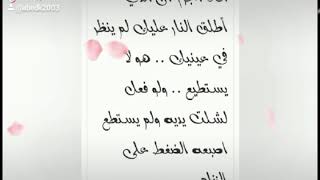 @abedk2003
أطلق النار عليك لم ينظر
في عينيك .. هو لا
يستطيع .. ولو فعل
لشلت يديه ولم يستطع
اصبعه الضغط على